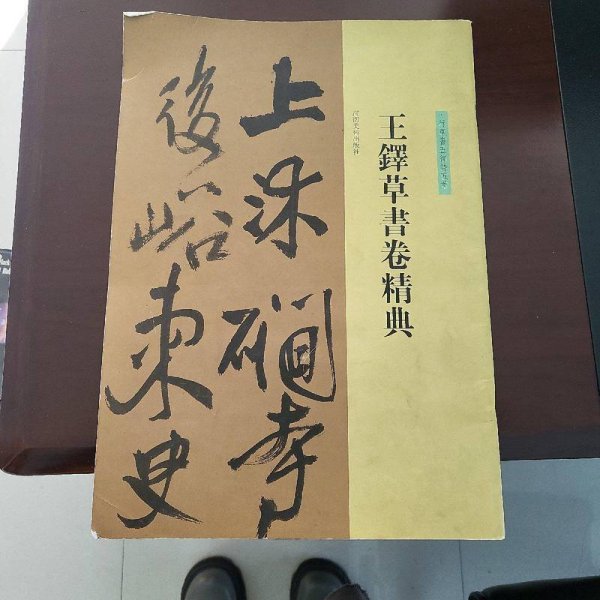 王鐸草書卷精典
河南美術出版社
上沐礀寺
後峪東史